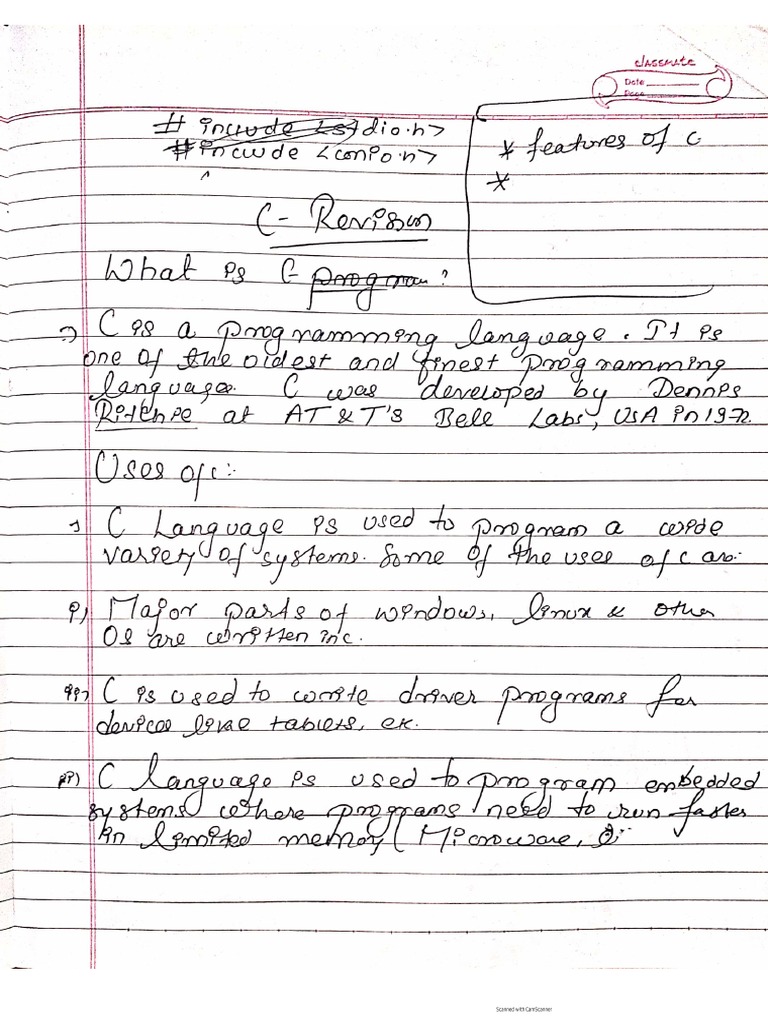 classmate
Date
Page
# include <stdio.h>
# include <conio.h>
* features of C
*
C - Revision
What is C - program?
→ C is a programming language. It is
one of the oldest and finest programming
languages. C was developed by Dennis
Ritchie at AT & T's Bell Labs, USA in 1972.
Uses of C:-
→ C Language is used to program a wide
variety of systems. Some of the uses of C are:
i) Major parts of windows, linux & other
OS are written in C.
ii) C is used to write driver programs for
devices like tablets, etc.
iii) C language is used to program embedded
systems where programs need to run faster
in limited memory (Microwave,
Scanned with CamScanner